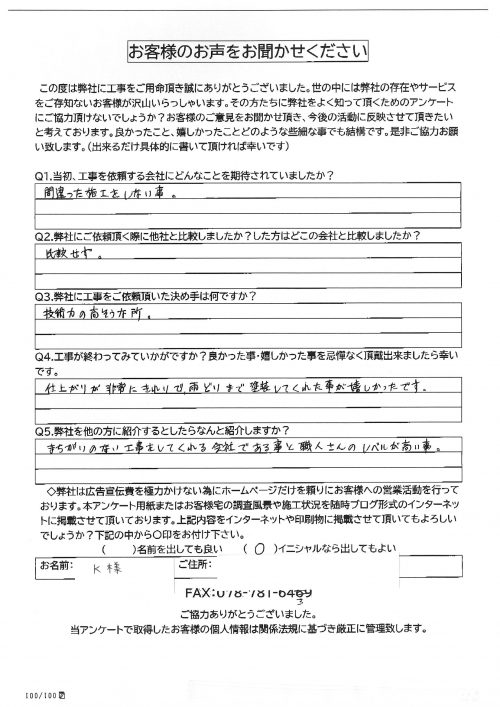 お客様のお声をお聞かせください
この度は弊社に工事をご用命頂き誠にありがとうございました。世の中には弊社の存在やサービス
をご存知ないお客様が沢山いらっしゃいます。その方たちに弊社をよく知って頂くためのアンケート
にご協力頂けないでしょうか？お客様のご意見をお聞かせ頂き、今後の活動に反映させて頂きたい
と考えております。良かったこと、嬉しかったことどのような些細な事でも結構です。是非ご協力お願
い致します。（出来るだけ具体的に書いて頂ければ幸いです）
Q1.当初、工事を依頼する会社にどんなことを期待されていましたか？
間違った施工をしない事。
Q2.弊社にご依頼頂く際に他社と比較しましたか？した方はどこの会社と比較しましたか？
比較せず。
Q3.弊社に工事をご依頼頂いた決め手は何ですか？
技術力の高そうな所。
Q4.工事が終わってみていかがですか？良かった事・嬉しかった事を忌憚なく頂戴出来ましたら幸い
です。
仕上がりが非常にきれいで、雨どいまで塗装してくれた事が嬉しかったです。
Q5.弊社を他の方に紹介するとしたらなんと紹介しますか？
まちがいのない工事をしてくれる会社である事と職人さんのレベルが高い事。
◇弊社は広告宣伝費を極力かけない為にホームページだけを頼りにお客様への営業活動を行って
おります。本アンケート用紙またはお客様宅の調査風景や施工状況を随時ブログ形式のインターネッ
トに掲載させて頂いております。上記内容をインターネットや印刷物に掲載させて頂いてもよろしい
でしょうか？下記の中から〇印をお付け下さい。
（　　）名前を出しても良い　（ ○ ）イニシャルなら出してもよい
お名前：　K様　ご住所：
FAX:078-781-6469
3
ご協力ありがとうございました。
当アンケートで取得したお客様の個人情報は関係法規に基づき厳正に管理致します。
100/100